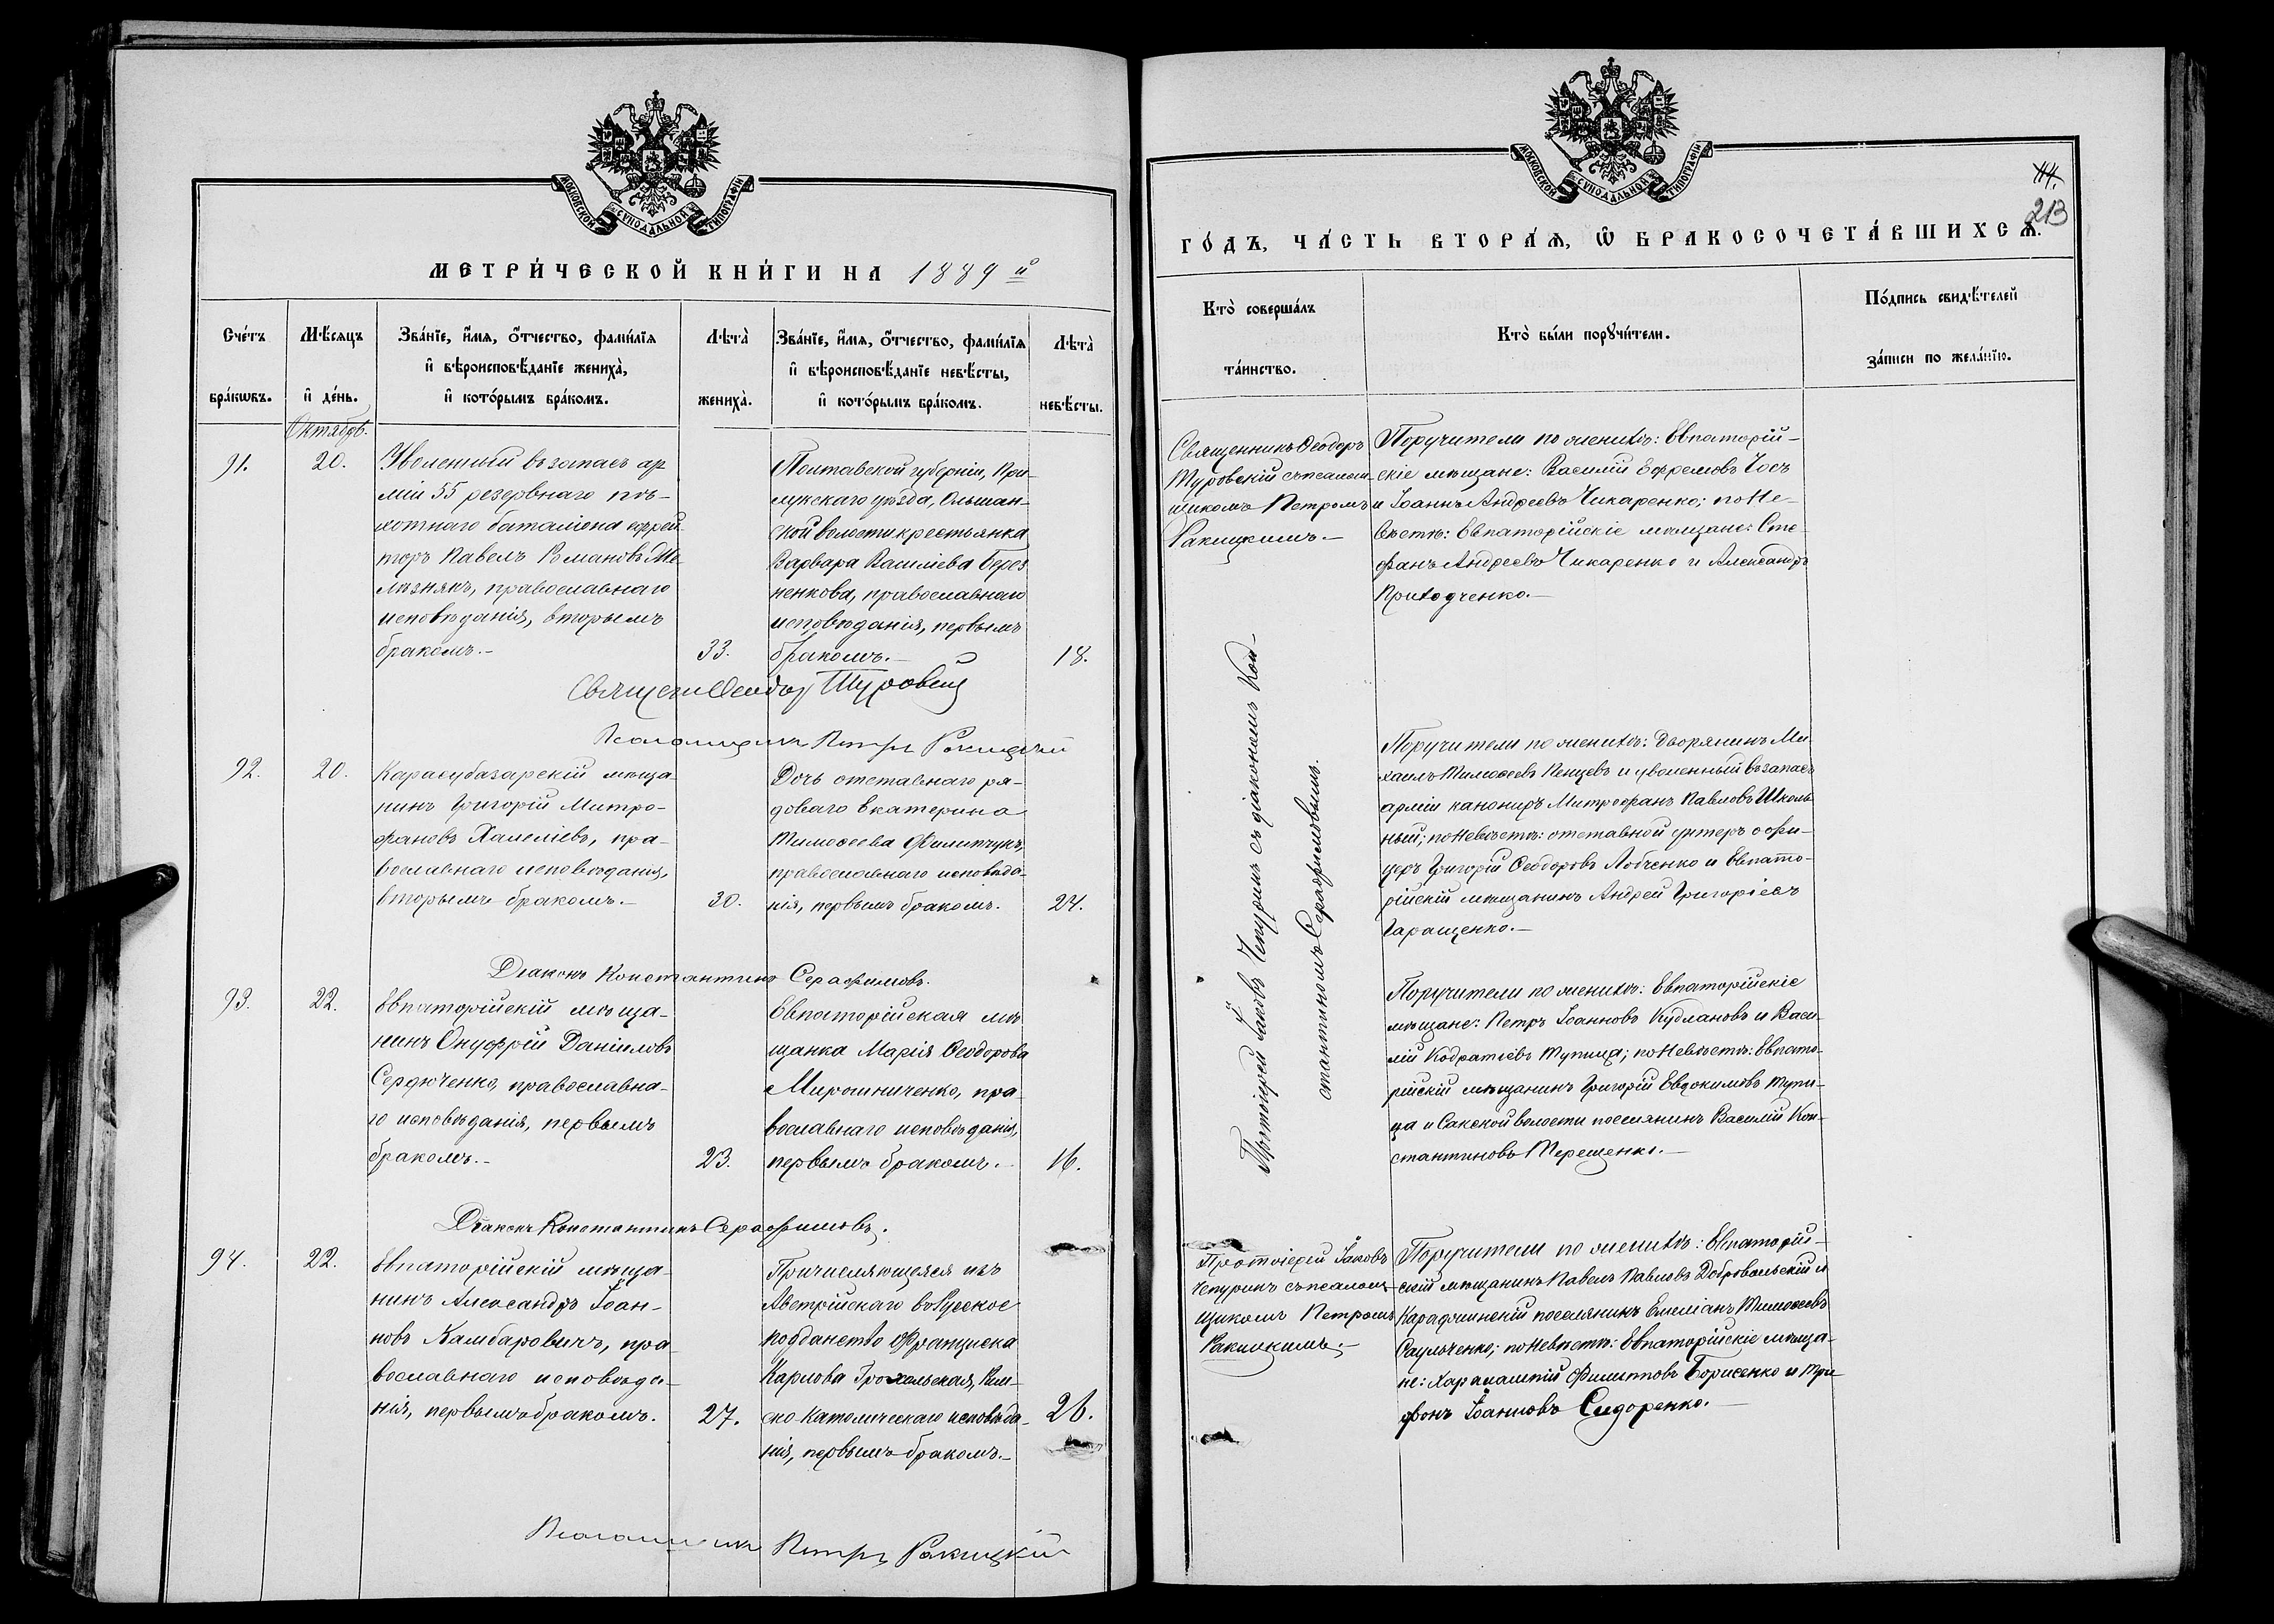 МОСКОВСКОЙ СУНОДАЛЬНОЙ ТИПОГРАФІИ
МЕТРИ́ЧЕСКОЙ КНИ́ГИ НА 1889 й
Сче́тъ бра́кωвъ.
Мѣ́сяцъ и҆ де́нь.
Зва́нїе, и҆́мѧ, ѻ҆́тчество, фами́лїѧ
и҆ вѣроисповѣ́данїе жениха̀,
и҆ кото́рымъ бра́комъ.
Лѣта̀ жениха̀.
Зва́нїе, и҆́мѧ, ѻ҆́тчество, фами́лїѧ
и҆ вѣроисповѣ́данїе невѣ́сты,
и҆ кото́рымъ бра́комъ.
Лѣта̀ невѣ́сты.
Октябрь.
91.
20.
Уволенный въ запасъ ар
міи 55 резервнаго пѣ-
хотнаго баталіона ефрей
торъ Павелъ Романовъ Ме
лазнякъ, православнаго
исповѣданія, вторымъ
бракомъ.-
33.
Полтавской губерніи, При-
лукскаго уѣзда, Ольшан-
ской волости крестьянка
Варвара Василіева Берез
ненкова, православнаго
исповѣданія, первымъ
бракомъ.-
18.
Священ Ѳеодор Туровскій
Псаломщикъ Петръ Ракицкій
92.
20.
Карасубазарскій мѣща-
нинъ Григорій Митро-
фановъ Халеліевъ, пра-
вославнаго исповѣданія,
вторымъ бракомъ.-
30.
Дочь отставнаго ря-
доваго Екатерина
Тимоѳеева Филипчукъ,
православнаго исповѣда-
нія, первымъ бракомъ.
24.
Діаконъ Константинъ Серафимовъ.
93.
22.
Евпаторійскій мѣща-
нинъ Онуфрій Даніиловъ
Сердюченко, православна-
го исповѣданія, первымъ
бракомъ.-
23.
Евпаторійская мѣ
щанка Марія Ѳеодорова
Мирошниченко, пра-
вославнаго исповѣданія,
первымъ бракомъ.-
16.
Діаконъ Константинъ Серафимовъ.
94.
22.
Евпаторійскій мѣща-
нинъ Александръ Іоан-
новъ Камбаровичъ, пра-
вославнаго исповѣда-
нія, первымъ бракомъ.
27.
Причисляющаяся изъ
Австрійскаго въ Русское
подданство Франциска
Карлова Грохольская, Рим-
ско-Католическаго исповѣда-
нія, первымъ бракомъ.-
26.
Псаломщикъ Петръ Ракицкій
МОСКОВСКОЙ СУНОДАЛЬНОЙ ТИПОГРАФІИ
213
ГО́ДЪ, ЧА́СТЬ ВТОРА́Ѧ, Ѽ БРАКОСОЧЕТА́ВШИХСѦ.
Кто̀ соверша́лъ
та́инство.
Кто̀ бы́ли порꙋчи́тели.
По́дпись свидѣ́телей
за́писи по жела́нїю.
Священникъ Ѳеодоръ
Туровскій съ псалом-
щикомъ Петромъ
Ракицкимъ.-
Поручители по женихѣ: Евпаторій-
скіе мѣщане: Василій Ефремовъ Чосъ
и Іоаннъ Андреевъ Чикаренко; по Не-
вѣстѣ: Евпаторійскіе мѣщане: Сте-
фанъ Андреевъ Чикаренко и Александръ
Приходченко.-
Протоіерей Іаковъ Чепуринъ съ діакономъ Кон-
стантиномъ Серафимовымъ.
Поручители по женихѣ: Дворянинъ Ми-
хаилъ Тимоѳеевъ Пенцевъ и уволенный въ запасъ
арміи канониръ Митрофанъ Павловъ Школь
ный; по Невѣстѣ: отставной унтеръ офи-
церъ Григорій Ѳеодоровъ Лобченко и Евпато-
рійскій мѣщанинъ Андрей Григоріевъ
Гаращенко.-
Поручители по женихѣ: Евпаторійскіе
мѣщане: Петръ Іоанновъ Кудлановъ и Васи-
лій Кодратіевъ Тупица; по Невѣстѣ: Евпато-
рійскій мѣщанинъ Григорій Евдокимовъ Тупи-
ца и Сакской волости поселянинъ Василій Кон-
стантиновъ Терещенко.-
Протоіерей Іаковъ
Чепуринъ съ псалом-
щикомъ Петромъ
Ракицкимъ.-
Поручители по женихѣ: Евпаторій-
скій мѣщанинъ Павелъ Павловъ Добровольскій и
поселянинъ Емеліанъ Тимоѳеевъ
по Невѣстѣ: Евпаторійскіе мѣща-
не: Харалампій Филипповъ Борисенко и Три
фонъ Іоанновъ Сидоренко.-